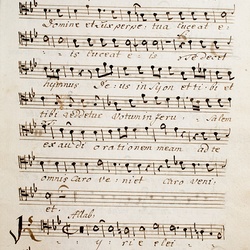 Domine et lux perpetua luceat e-
is luceat e- is Te decet
hymnus Deus in Syon et tibi et
tibi reddetur Votum in Jeru- Salem
exaudi orationem meam ad te
omnis caro veniet Caro veni-
et.
Allab:
Kyrie elei